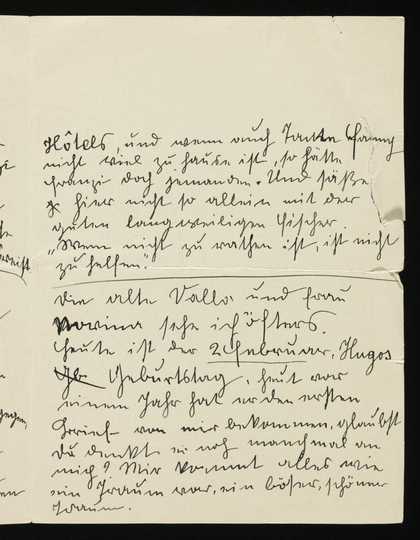 Hôtels, und wenn auch Tante Fanny
nicht viel zu hause ist, so hätte
Franzi doch jemanden. Und säße
hier nicht so allein mit der
guten langweiligen Fischer.
„Wem nicht zu rathen ist, ist nicht
zu helfen".
Die alte Valls und Frau
Marina sehe ich öfters.
Heute ist der 2. Februar, Hugos
Geburtstag, heut vor
einem Jahr hat er den ersten
Brief von mir bekommen, glaubst
du denkt er noch manchmal an
mich? Mir kommt alles wie
ein Traum vor, ein böser, schöner
Traum.